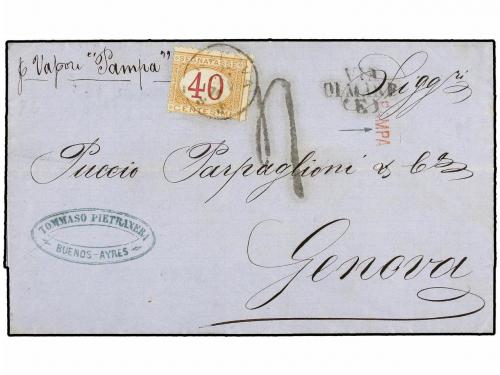 p Vapore "Pampa"
SEGNATASSE
40
CENTESIMI
VIA
DI MARE
(E)
PAMPA
Sigg.ri
Puccio Parpaglioni & C.ia
TOMMASO PIETRANERA
BUENOS-AYRES
Genova